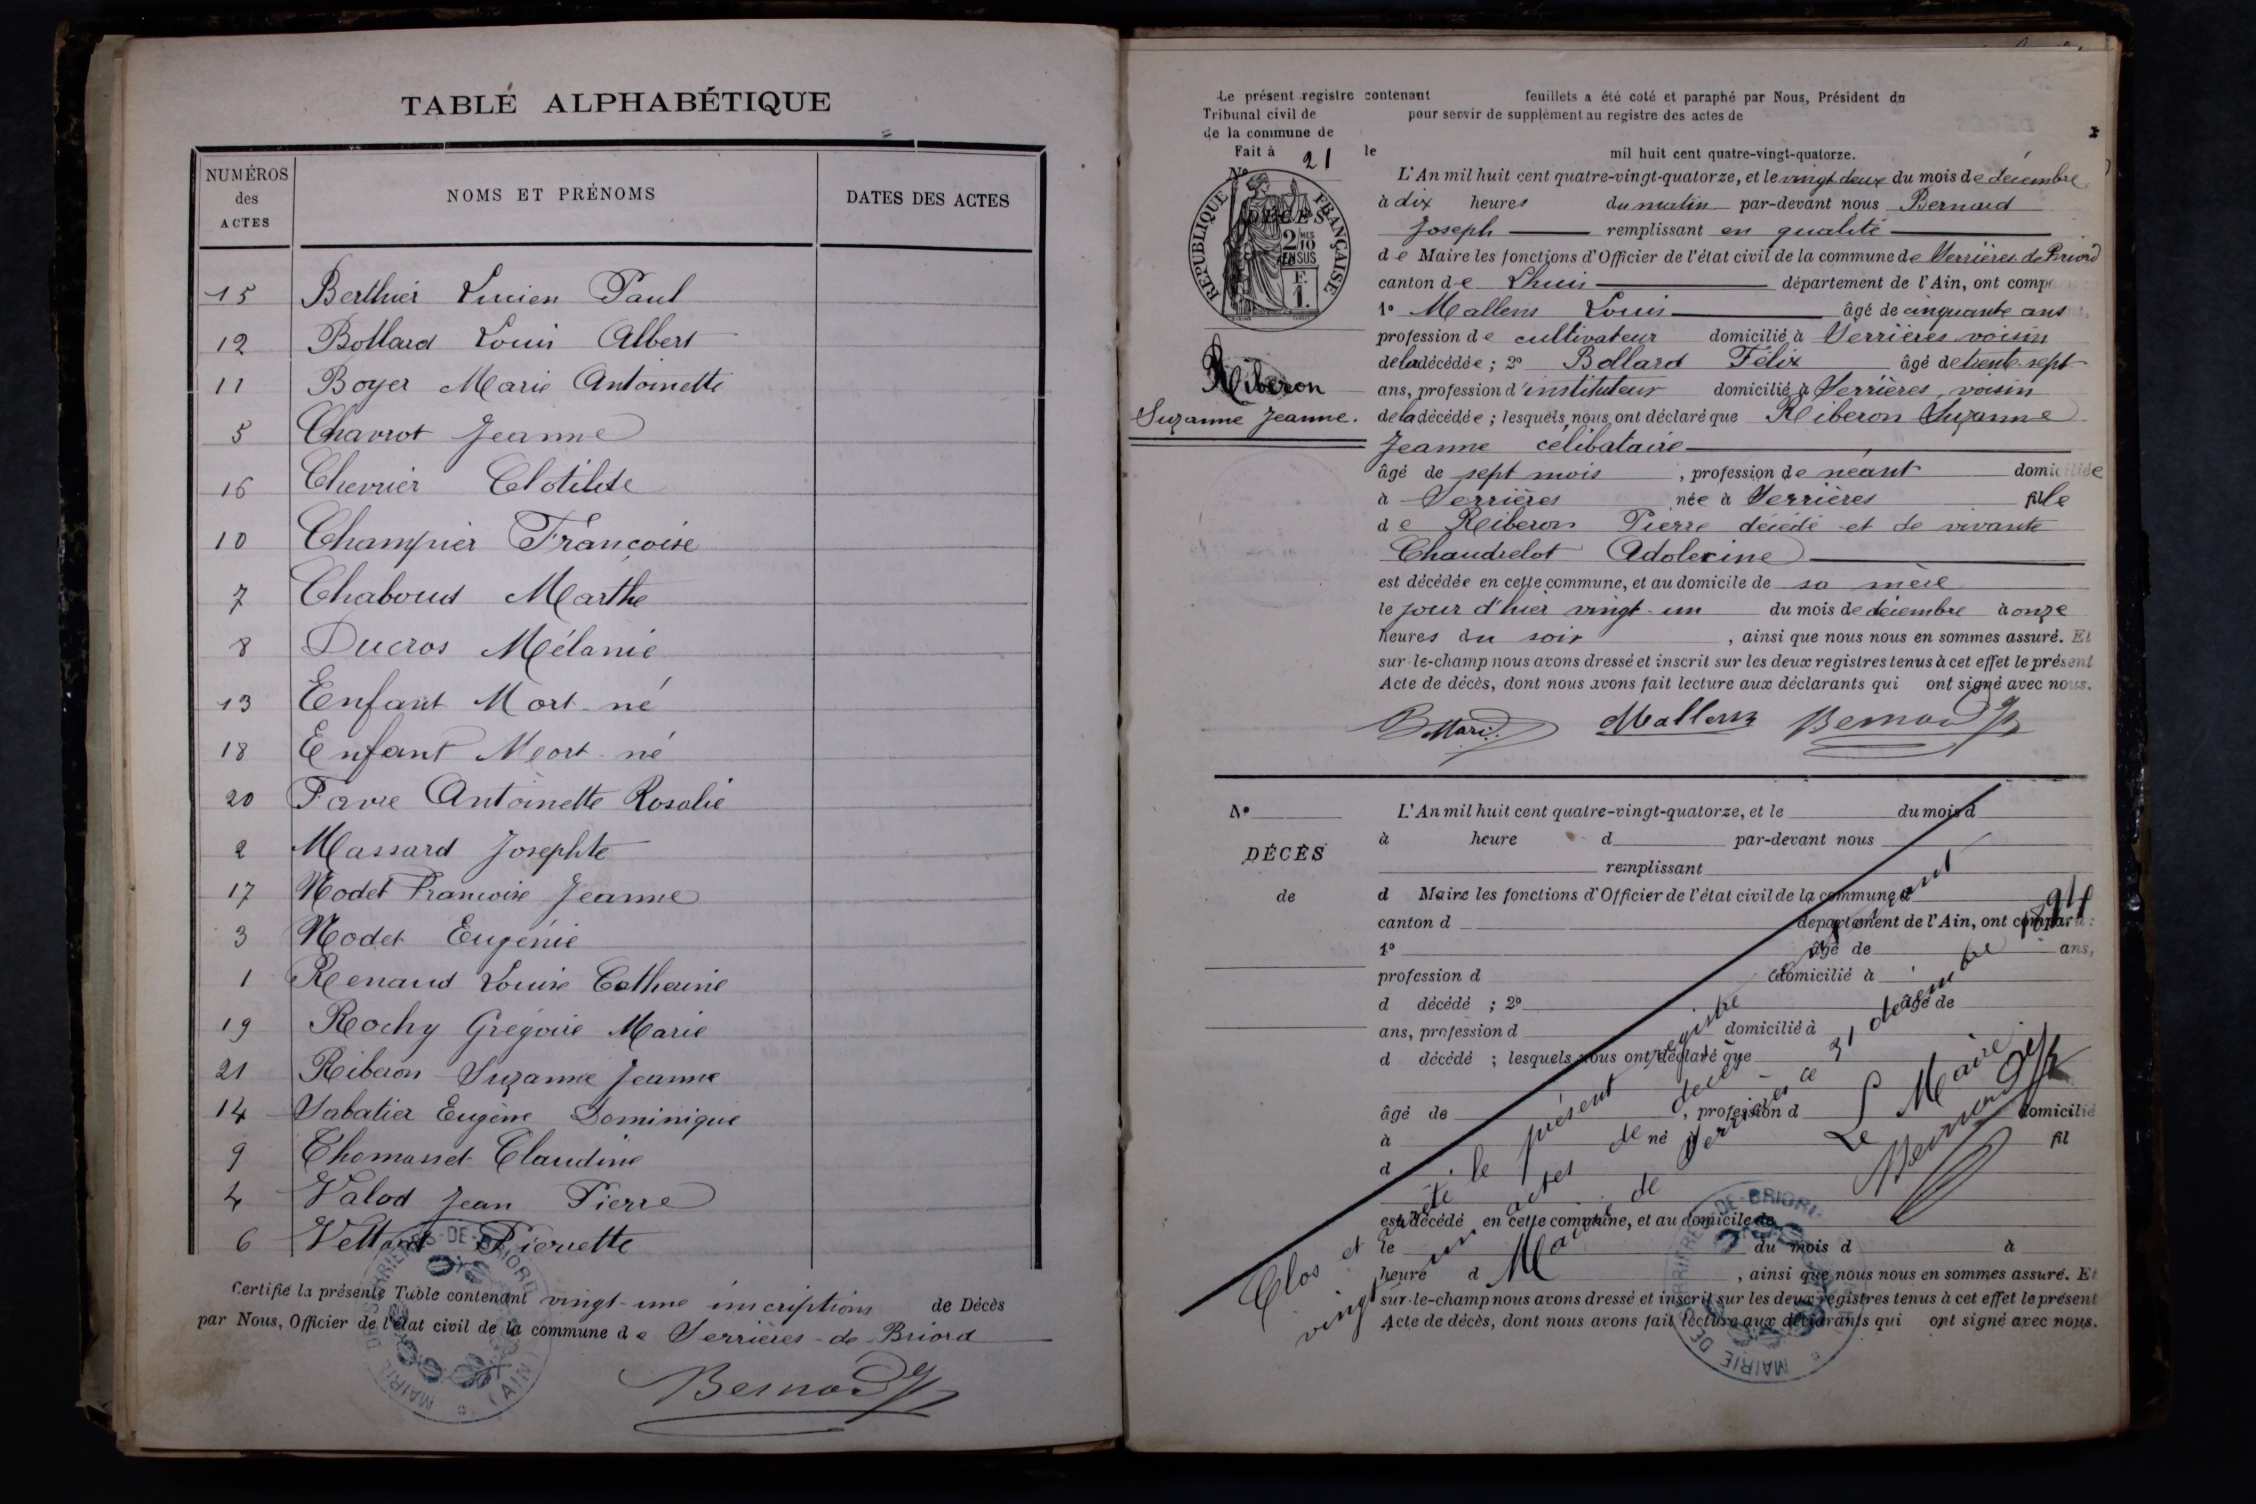 TABLE ALPHABÉTIQUE
NUMÉROS des ACTES
NOMS ET PRÉNOMS
DATES DES ACTES
15 Berthier Lucien Paul
12 Bollard Louis Albert
11 Boyer Marie Antoinette
5 Chavrot Jeanne
16 Chevrier Clotilde
10 Champier Françoise
7 Chaboud Marthe
8 Ducros Mélanie
13 Enfant Mort-né
18 Enfant Mort-né
20 Favre Antoinette Rosalie
2 Massard Josephte
17 Nodet Francoise Jeanne
3 Nodet Eugénie
1 Renaud Louise Catherine
19 Rochy Grégoire Marie
21 Riberon Suzanne Jeanne
14 Sabatier Eugène Dominique
9 Thomasset Claudine
4 Valod Jean Pierre
6 Vettard Pierrette
Certifié la présente Table contenant vingt-une inscriptions de Décès
par Nous, Officier de l'état civil de la commune de Serrières-de-Briord
Bernard
MAIRIE DE SERRIÈRES-DE-BRIORD (AIN)
Le présent registre contenant feuillets a été coté et paraphé par Nous, Président du
Tribunal civil de pour servir de supplément au registre des actes de
de la commune de
Fait à le mil huit cent quatre-vingt-quatorze.
N° 21
DÉCÈS
RÉPUBLIQUE FRANÇAISE
2/10 EN SUS
F. 1.
Riberon
Suzanne Jeanne.
L'An mil huit cent quatre-vingt-quatorze, et le vingt deux du mois de décembre
à dix heures du matin par-devant nous Bernard
Joseph remplissant en qualité
de Maire les fonctions d'Officier de l'état civil de la commune de Serrières de Briord
canton de Lhuis département de l'Ain, ont comp
1° Mallens Louis âgé de cinquante ans
profession de cultivateur domicilié à Serrières voisin
de la décédée ; 2° Bollard Félix âgé de trente sept
ans, profession d'instituteur domicilié à Serrières, voisin
de la décédée ; lesquels nous ont déclaré que Riberon Suzanne
Jeanne célibataire
âgé de sept mois, profession de néant domiciliée
à Serrières née à Serrières fille
de Riberon Pierre décédé et de vivante
Chaudelot Adolexine
est décédée en cette commune, et au domicile de sa mère
le jour d'hier vingt-un du mois de décembre à onze
heures du soir, ainsi que nous nous en sommes assuré. Et
sur-le-champ nous avons dressé et inscrit sur les deux registres tenus à cet effet le présent
Acte de décès, dont nous avons fait lecture aux déclarants qui ont signé avec nous.
Bollard Mallens Bernard
N°
DÉCÈS
de
L'An mil huit cent quatre-vingt-quatorze, et le du mois d
à heure d par-devant nous
remplissant
d Maire les fonctions d'Officier de l'état civil de la commune d
canton d département de l'Ain, ont comparu :
1° âgé de ans,
profession d domicilié à
d décédé ; 2° âgé de
ans, profession d domicilié à
d décédé ; lesquels nous ont déclaré que
âgé de , profession d domicilié
à né à fil
d
est décédé en cette commune, et au domicile de
le du mois d à
heure d , ainsi que nous nous en sommes assuré. Et
sur-le-champ nous avons dressé et inscrit sur les deux registres tenus à cet effet le présent
Acte de décès, dont nous avons fait lecture aux déclarants qui ont signé avec nous.
Clos et arrêté le présent registre contenant
vingt un actes de décès
Mairie de Serrières ce 31 décembre 1894
Le Maire
Bernard
MAIRIE DE SERRIÈRES-DE-BRIORD